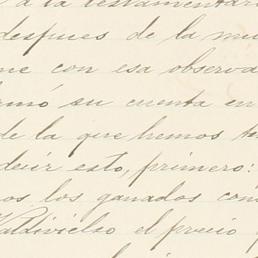 a la testamentari
despues de la mu
me con esa observa
rmó su cuenta en
de la que hemos te
decir esto, primero:
os los ganados com
Valdivielso el precio